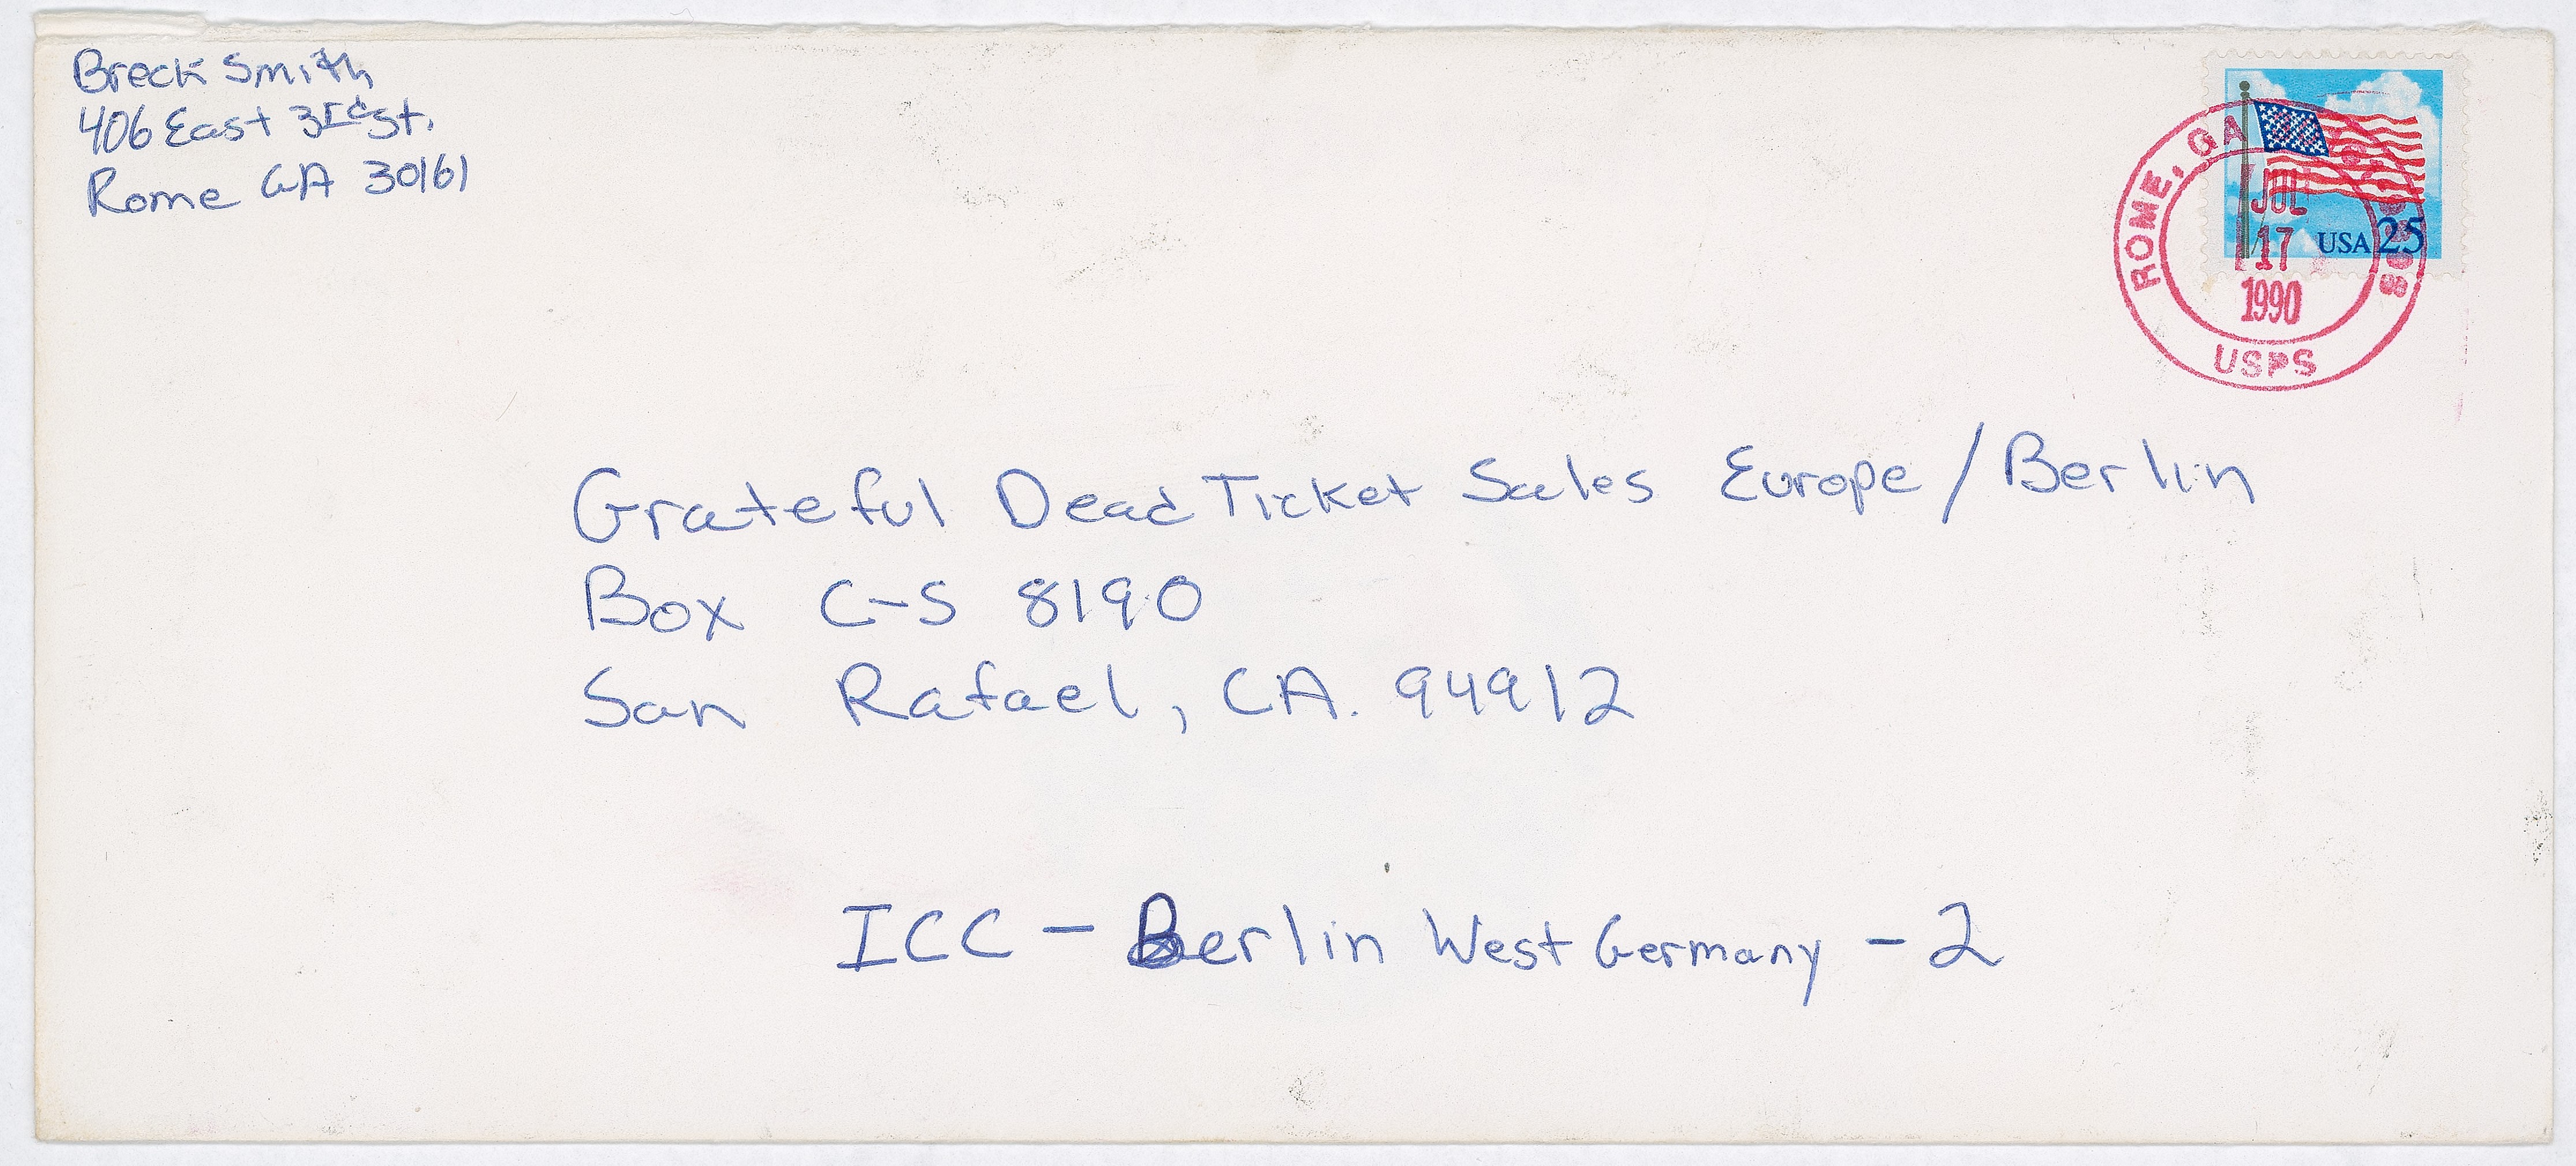 Breck Smith
406 East 3rd St.
Rome GA 30161
ROME, GA
JUL
17
1990
USPS
USA 25
Grateful Dead Ticket Sales Europe / Berlin
Box C-S 8190
San Rafael, CA. 94912
ICC - Berlin West Germany - 2